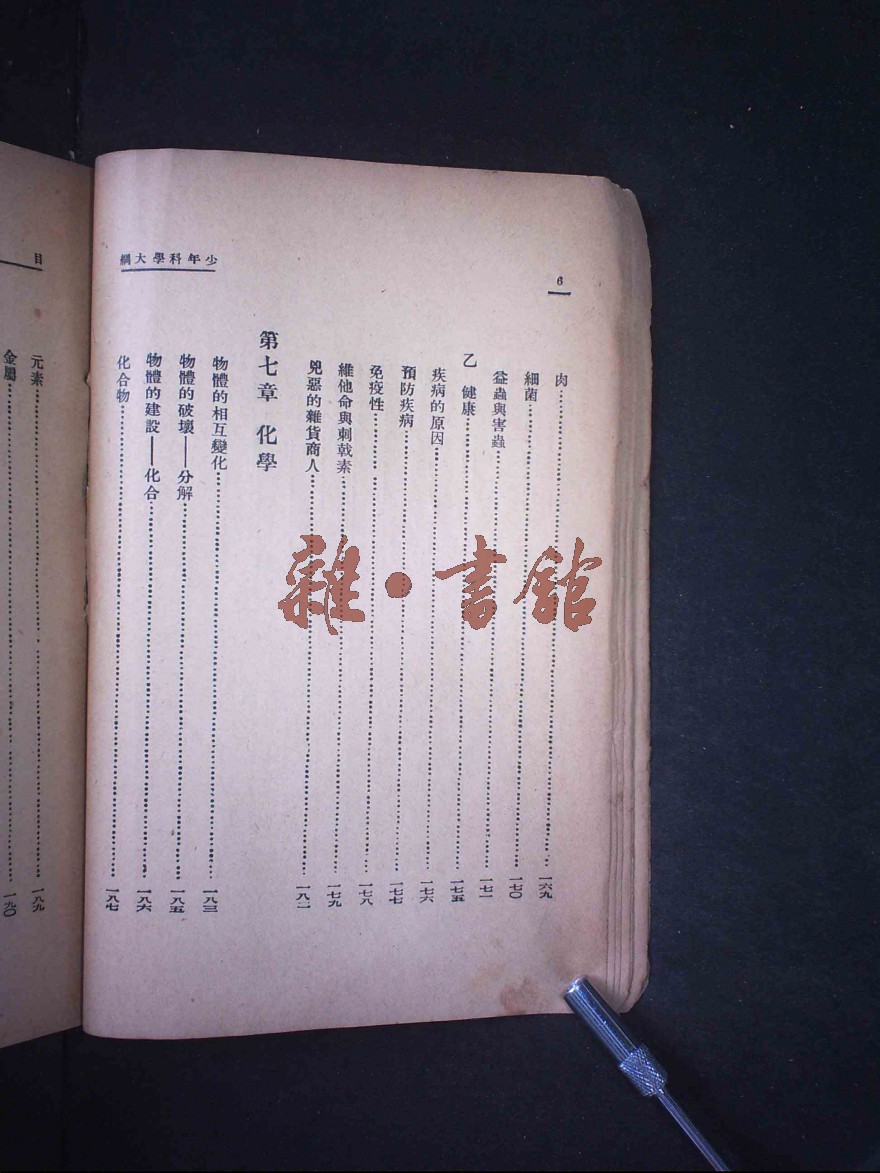 少年科學大綱
6
肉……一六九
細菌……一七〇
益蟲與害蟲……一七一
乙 健康……一七五
疾病的原因……一七六
預防疾病……一七七
免疫性……一七八
維他命與刺戟素……一七九
兇惡的雜貨商人……一八二
第七章 化學
物體的相互變化……一八三
物體的破壞——分解……一八五
物體的建設——化合……一八六
化合物……一八七
目
元素……一八九
金屬……一九〇
雜·書館